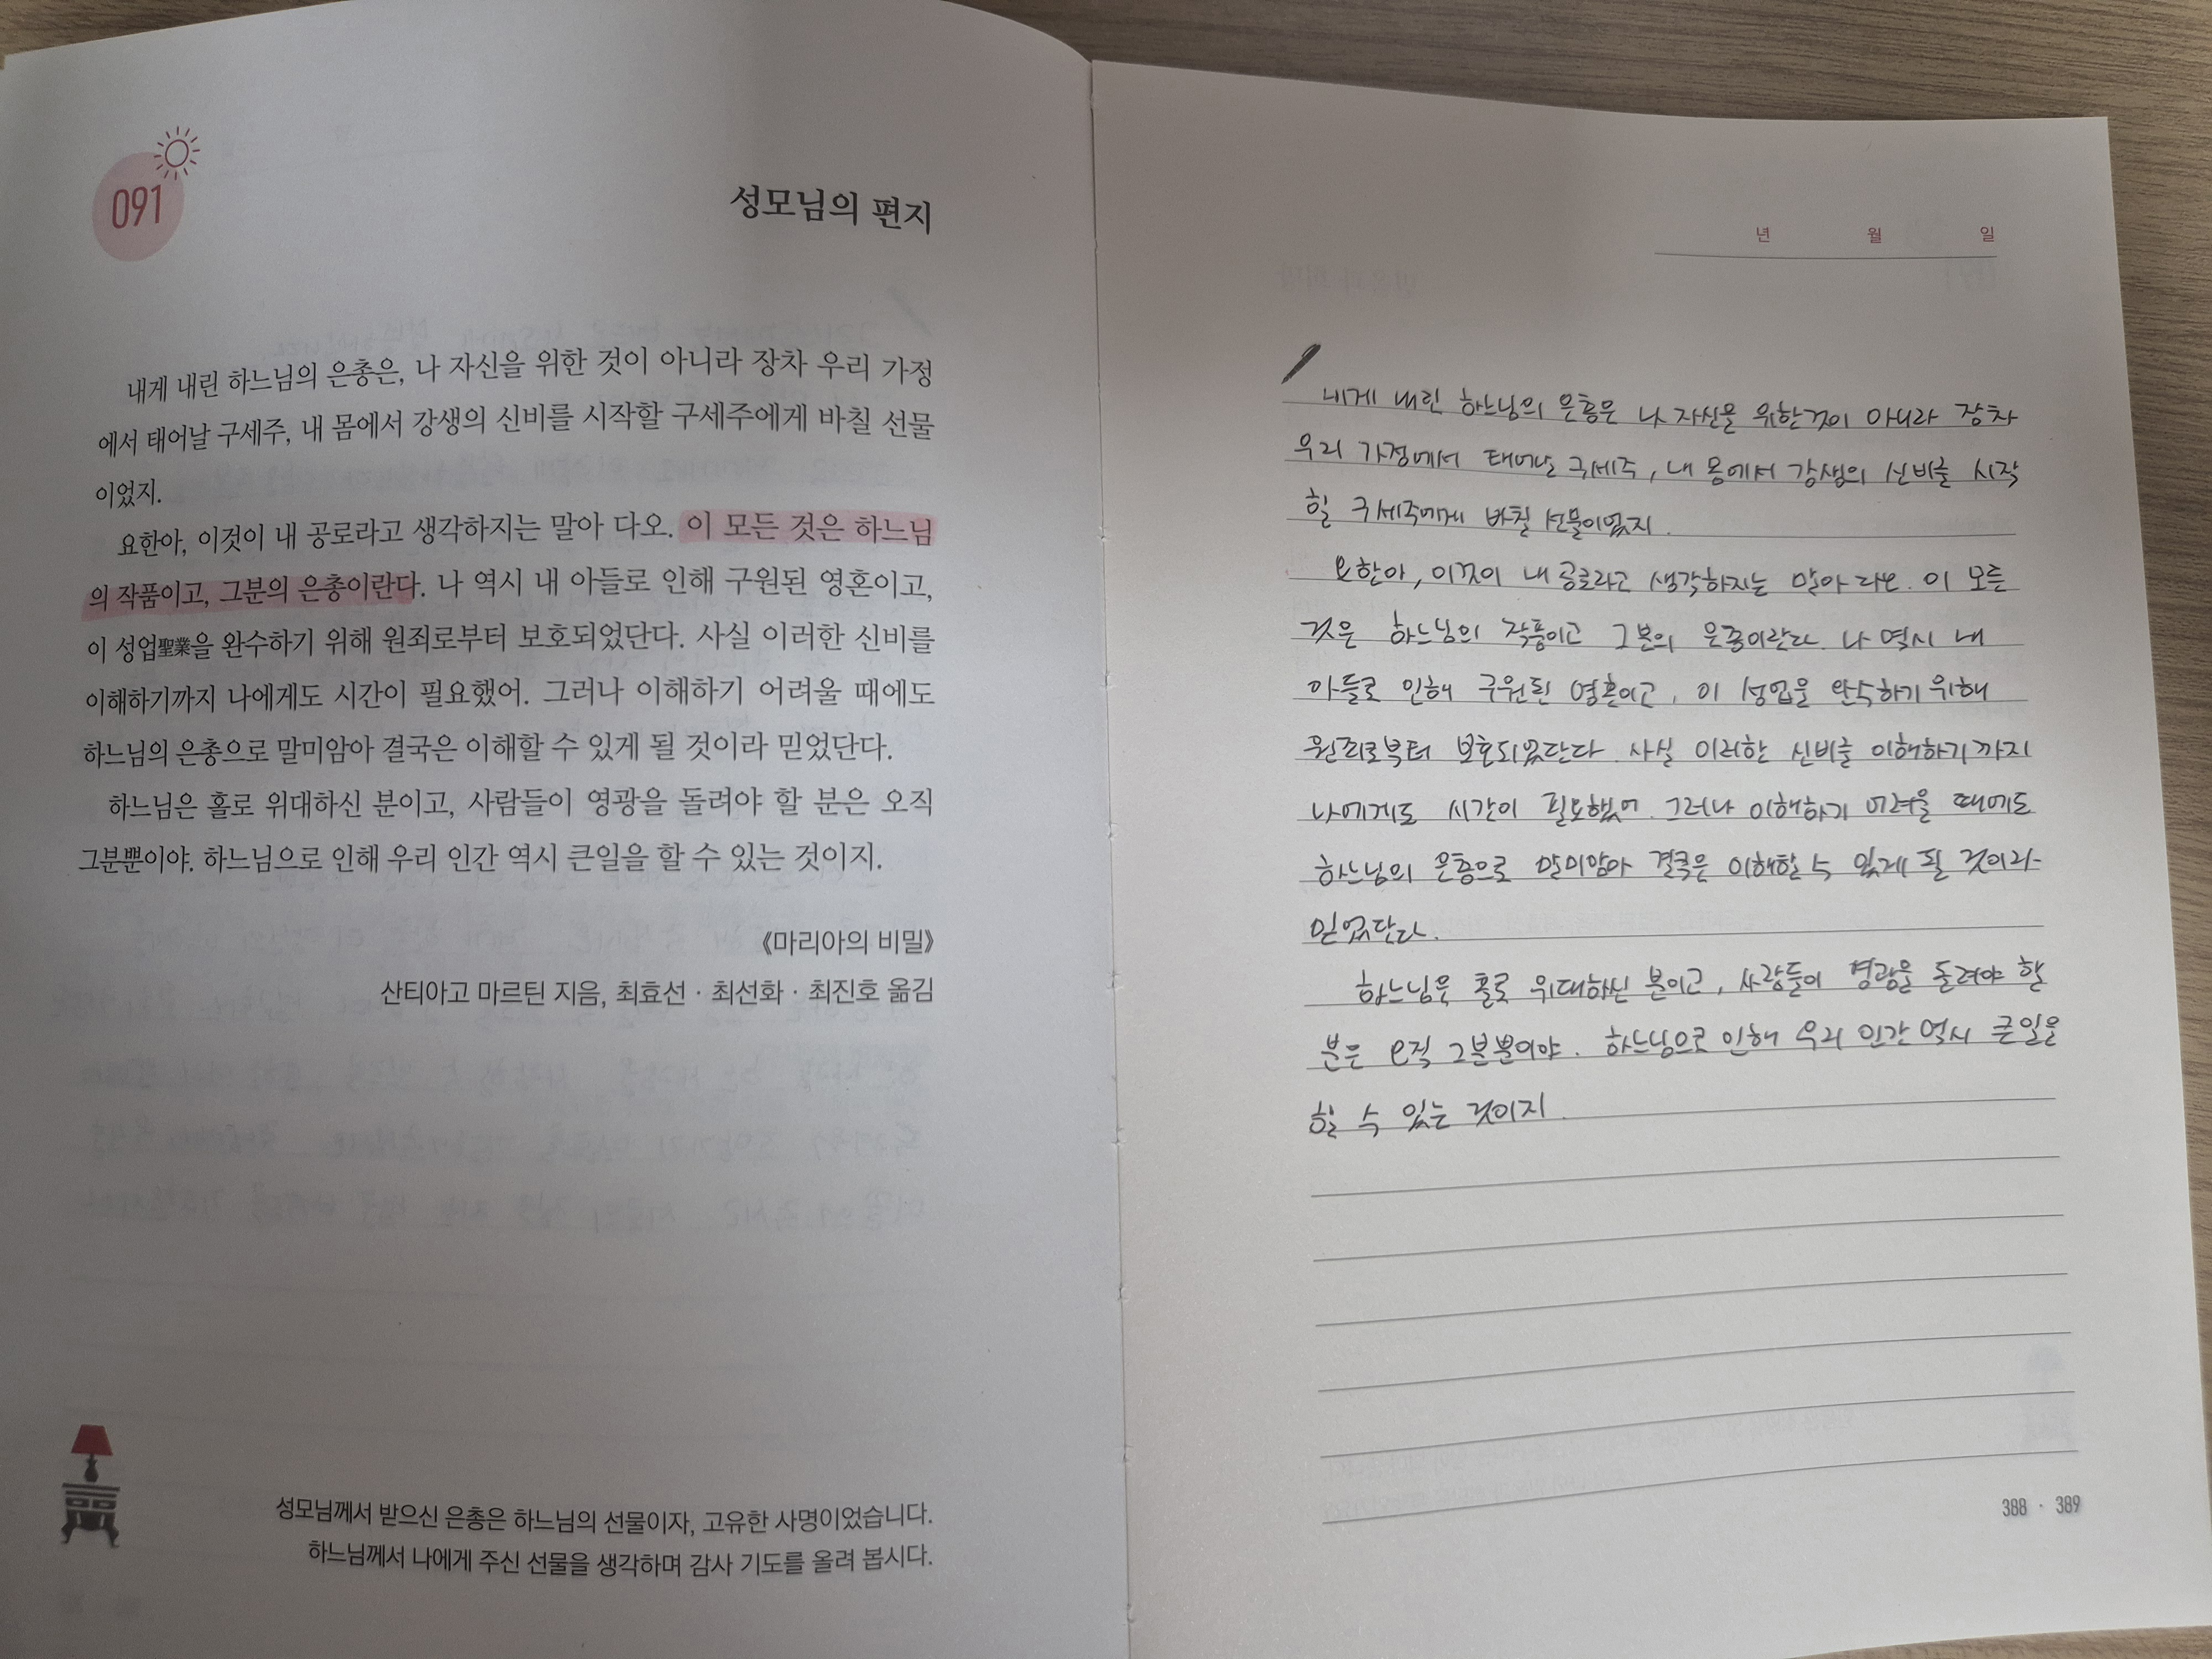 091
성모님의 편지
내게 내린 하느님의 은총은, 나 자신을 위한 것이 아니라 장차 우리 가정
에서 태어날 구세주, 내 몸에서 강생의 신비를 시작할 구세주에게 바칠 선물
이었지.
요한아, 이것이 내 공로라고 생각하지는 말아 다오. 이 모든 것은 하느님
의 작품이고, 그분의 은총이란다. 나 역시 내 아들로 인해 구원된 영혼이고,
이 성업聖業을 완수하기 위해 원죄로부터 보호되었단다. 사실 이러한 신비를
이해하기까지 나에게도 시간이 필요했어. 그러나 이해하기 어려울 때에도
하느님의 은총으로 말미암아 결국은 이해할 수 있게 될 것이라 믿었단다.
하느님은 홀로 위대하신 분이고, 사람들이 영광을 돌려야 할 분은 오직
그분뿐이야. 하느님으로 인해 우리 인간 역시 큰일을 할 수 있는 것이지.
《마리아의 비밀》
산티아고 마르틴 지음, 최효선 · 최선화 · 최진호 옮김
성모님께서 받으신 은총은 하느님의 선물이자, 고유한 사명이었습니다.
하느님께서 나에게 주신 선물을 생각하며 감사 기도를 올려 봅시다.
년 월 일
내게 내린 하느님의 은총은 나 자신을 위한것이 아니라 장차
우리 가정에서 태어난 구세주, 내 몸에서 강생의 신비를 시작
할 구세주에게 바칠 선물이었지.
요한아, 이것이 내 공로라고 생각하지는 말아 다오. 이 모든
것은 하느님의 작품이고 그분의 은총이란다. 나 역시 내
아들로 인해 구원된 영혼이고, 이 성업을 완수하기 위해
원죄로부터 보호되었단다. 사실 이러한 신비를 이해하기까지
나에게도 시간이 필요했어. 그러나 이해하기 어려울 때에도
하느님의 은총으로 말미암아 결국은 이해할 수 있게 될 것이라
믿었단다.
하느님은 홀로 위대하신 분이고, 사람들이 영광을 돌려야 할
분은 오직 그분뿐이야. 하느님으로 인해 우리 인간 역시 큰일을
할 수 있는 것이지.
388 · 389